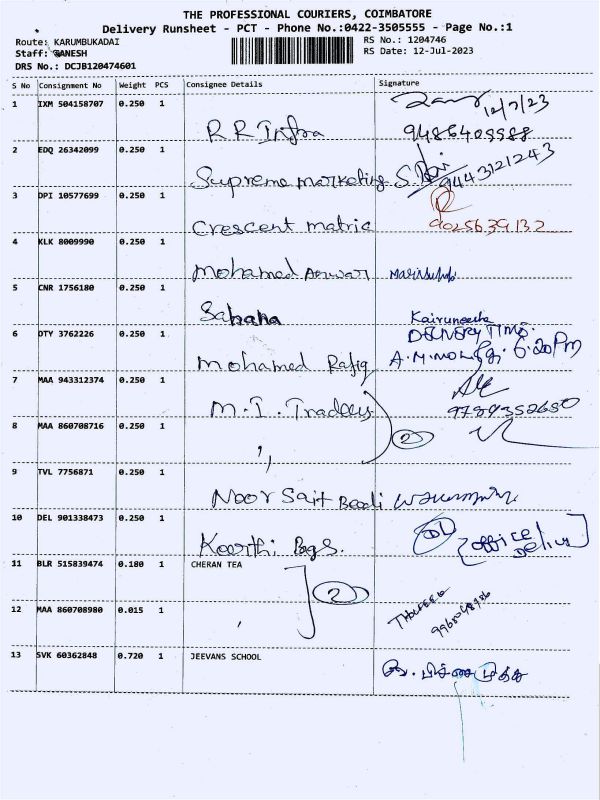 THE PROFESSIONAL COURIERS, COIMBATORE
Delivery Runsheet - PCT - Phone No.:0422-3505555 - Page No.:1
Route: KARUMBUKADAI
RS No.: 1204746
Staff: GANESH
RS Date: 12-Jul-2023
DRS No.: DCJB120474601
S No Consignment No Weight PCS Consignee Details Signature
1 IXM 504158707 0.250 1
12/7/23
R R Infra 9486409988
2 EDQ 26342099 0.250 1
Supreme marketing 9443121243
3 DPI 10577699 0.250 1
Crescent matric 9025639132
4 KLK 8009990 0.250 1
Mohamed Anwar
5 CNR 1756180 0.250 1
Sahana Kairuneesha
6 DTY 3762226 0.250 1
DELIVERY TIME.
Mohamed Rafiq 6.20PM
7 MAA 943312374 0.250 1
M.I. Traders
8 MAA 860708716 0.250 1
,, 2
9 TVL 7756871 0.250 1
Noor Sait Beedi
10 DEL 901338473 0.250 1
Keerthi Bags. office
11 BLR 515839474 0.180 1 CHERAN TEA
2
12 MAA 860708980 0.015 1
,
13 SVK 60362848 0.720 1 JEEVANS SCHOOL